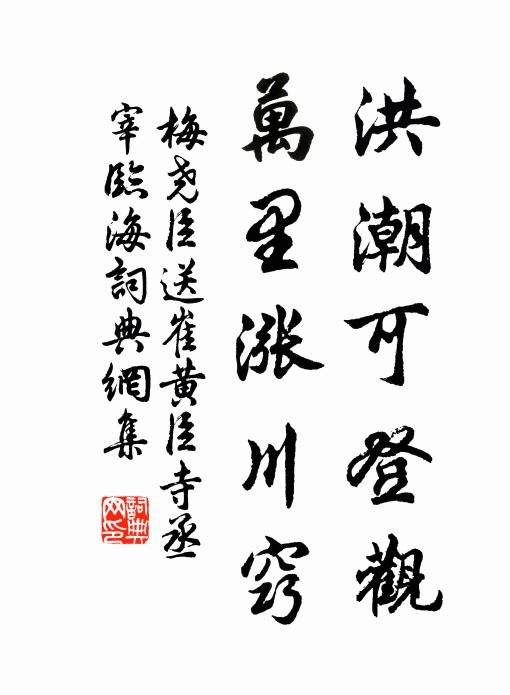 洪潮可登觀
萬里漲川窍
梅尧臣送崔黄臣寺丞
宰臨海詞典網集
詞典
网印